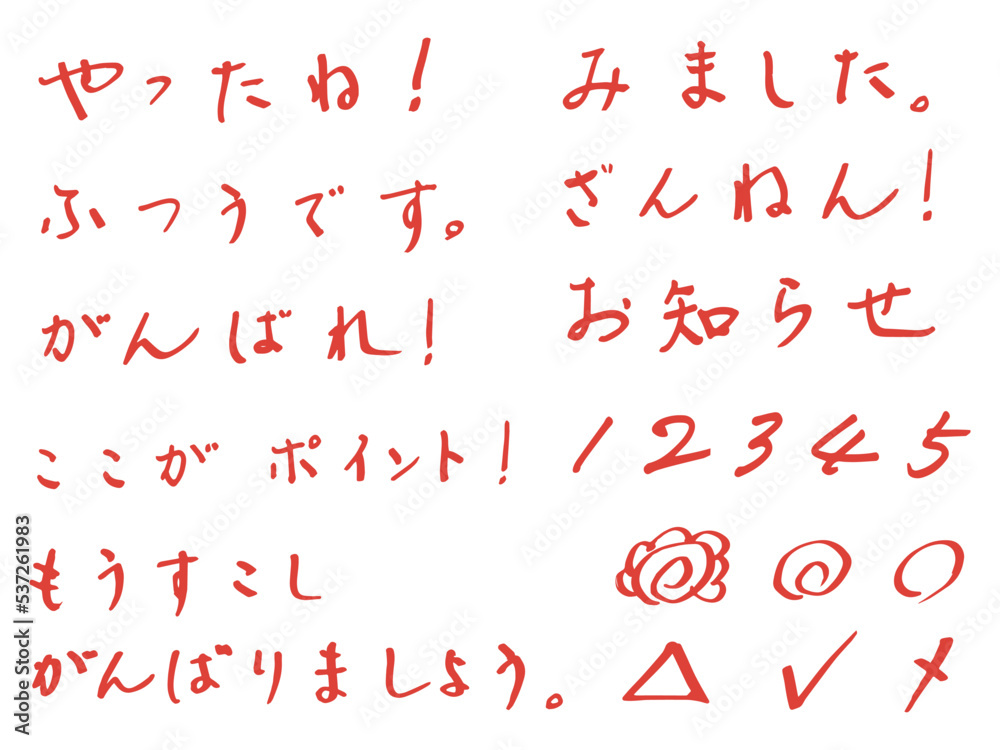 やったね!
ふつうです。
がんばれ!
ここが ポイント!
もうすこし
がんばりましょう。
みました。
ざんねん!
お知らせ
1 2 3 4 5
Adobe Stock | #537261983